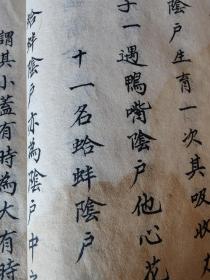 陰戶生育一次其吸收力
子一遇鴨嘴陰戶他心花
十一名蛤蚌陰戶
蛤蚌陰戶亦為陰戶中之
謂其小蓋有時為大有時